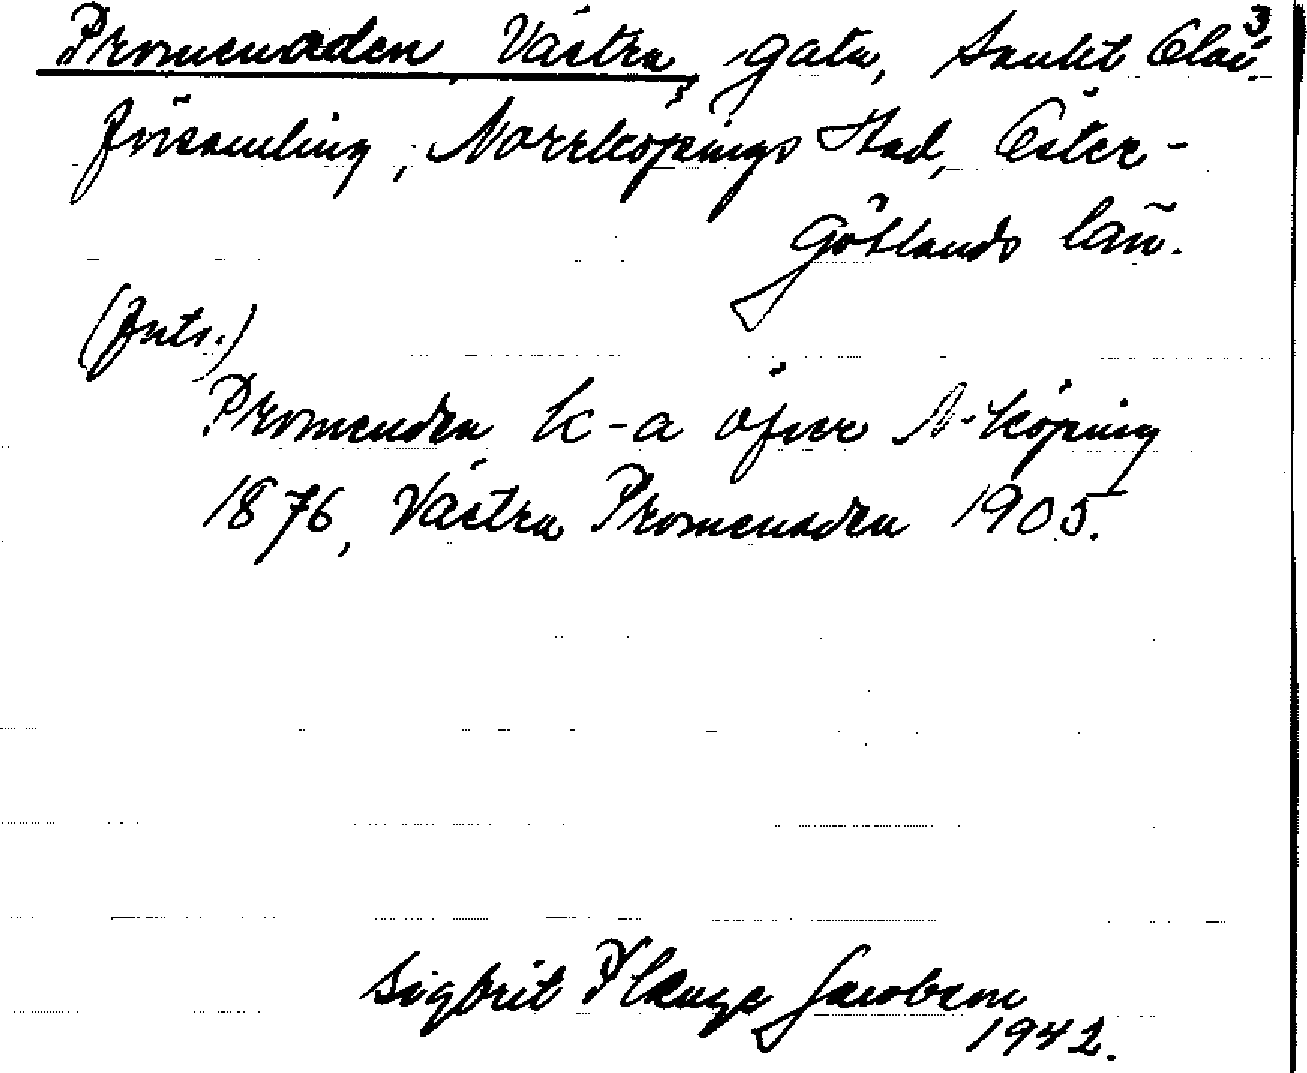 3
Promenaden, Västra, gata, Sankt Olai
församling, Norrköpings stad, Öster-
götlands län.
(forts.)
Promenaden k-a öfver N-köping
1876, Västra Promenaden 1905.
Sigbrit Plænge Jacobson
1942.